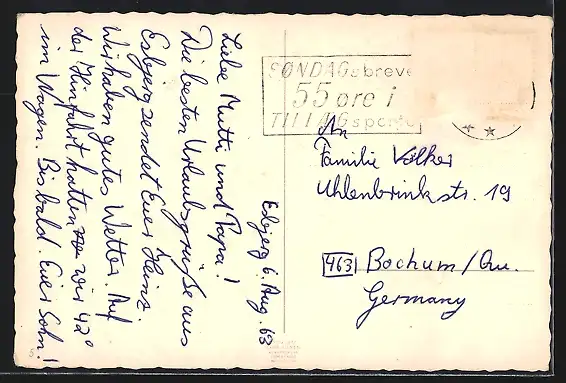 Esbjerg 6. Aug. 63
Liebe Mutti und Papa!
Die besten Urlaubsgrüße aus
Esbjerg sendet Euer Heinz
Wir haben gutes Wetter. Auf
der Hinfahrt hatten wir 42°
im Wagen. Bis bald. Euer Sohn!
SØNDAGsbreve
55 øre i
TILLÆGsporto
An
Familie Völker
Uhlenbrinkstr. 19
463 Bochum/Qu.
Germany